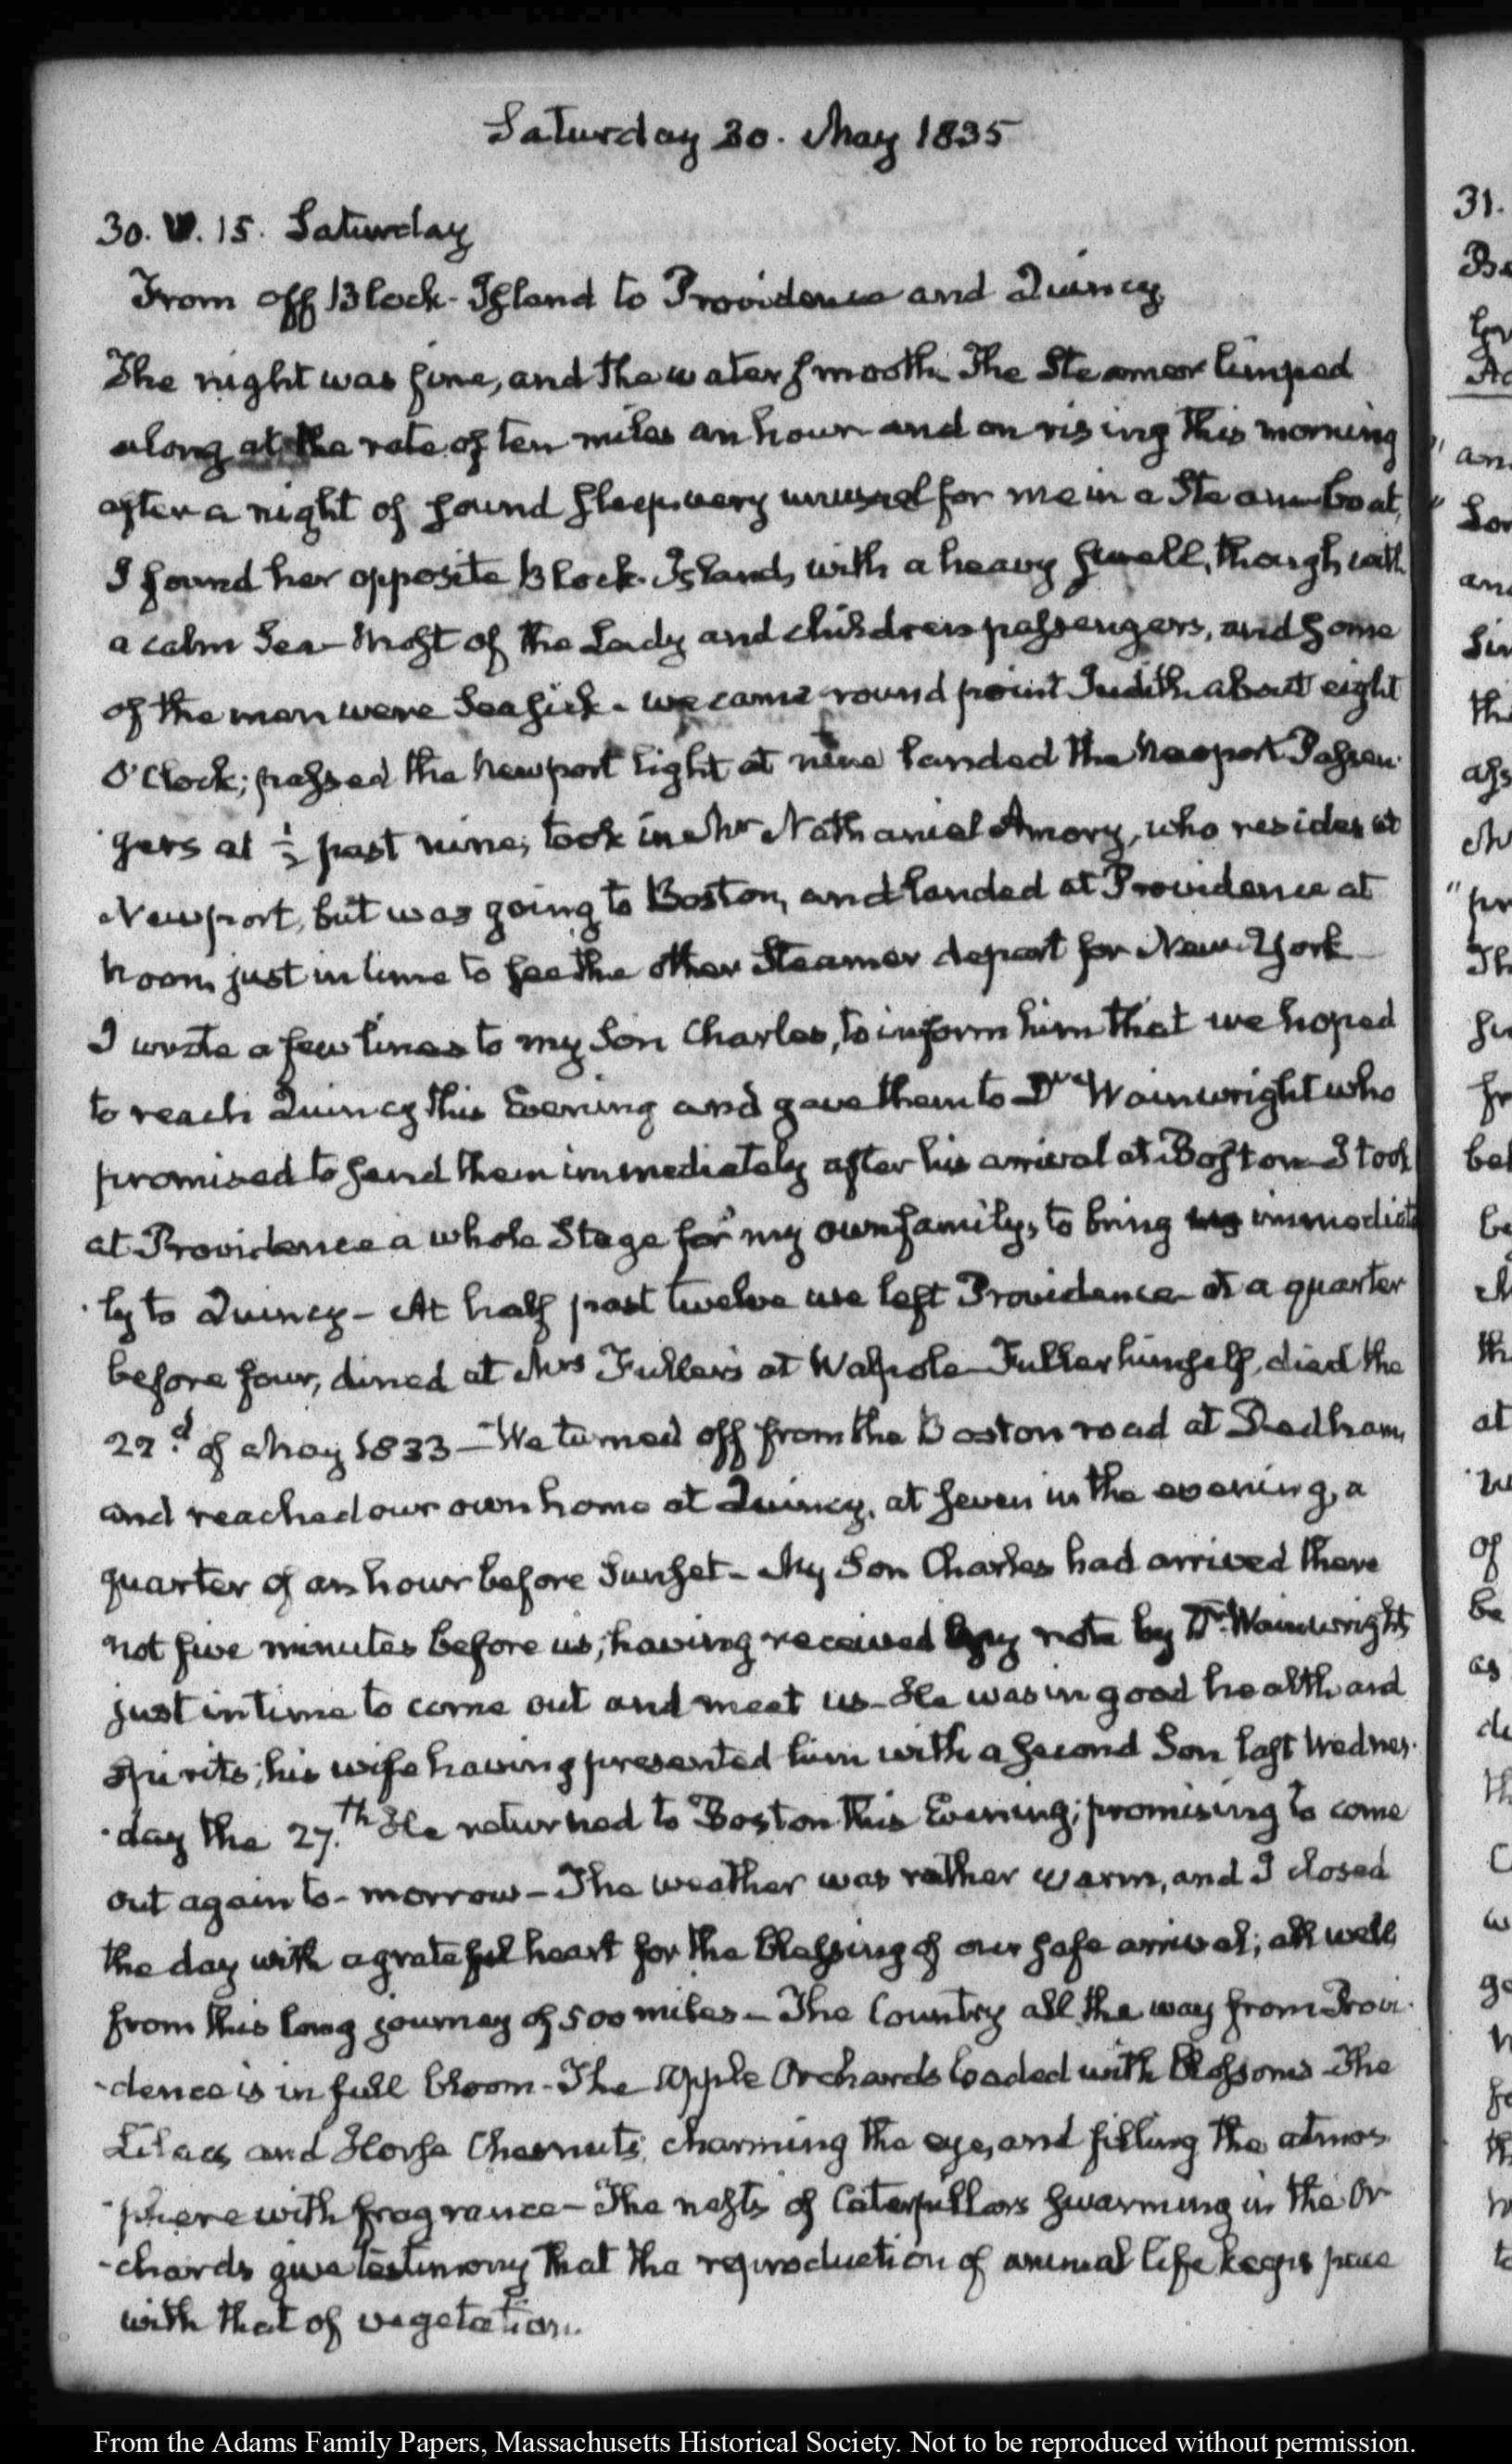 Saturday 30. May 1835
30. V. 15. Saturday
From off Block-Island to Providence and Quincy
The night was fine, and the water smooth. The Steamer limped
along at the rate of ten miles an hour and on rising this morning
after a night of sound sleep, very unusual for me in a Steam-boat,
I found her opposite Block-Island, with a heavy swell, though with
a calm Sea - Most of the Lady and children passengers, and some
of the men were Seasick - we came round point Judith about eight
O'Clock; passed the Newport light at nine landed the Newport Passen-
gers at ½ past nine; took in Mr Nathaniel Amory, who resides at
Newport, but was going to Boston, and landed at Providence at
Noon, just in time to see the other Steamer depart for New-York -
I wrote a few lines to my Son Charles, to inform him that we hoped
to reach Quincy this Evening and gave them to Dr Wainwright who
promised to send them immediately after his arrival at Boston - I took
at Providence a whole Stage for my own family, to bring us immediate
-ly to Quincy - At half past twelve we left Providence - at a quarter
before four, dined at Mrs Fuller's at Walpole - Fuller himself, died the
22.d of May 1833 - We turned off from the Boston road at Dedham,
and reached our own home at Quincy, at seven in the evening, a
quarter of an hour before Sunset - My Son Charles had arrived there
not five minutes before us; having received my note by Dr. Wainwright,
just in time to come out and meet us - He was in good health and
spirits; his wife having presented him with a second Son last Wednes-
-day the 27.th He returned to Boston this Evening; promising to come
out again to-morrow - The weather was rather warm, and I closed
the day with a grateful heart for the blessing of our safe arrival; all well,
from this long journey of 500 miles - The Country all the way from Provi-
-dence is in full bloom - The Apple Orchards loaded with blossoms - The
Lilacs and Horse Chesnuts, charming the eye, and filling the atmos
-phere with fragrance - The nests of Caterpillars swarming in the Or
-chards give testimony that the reproduction of animal life keeps pace
with that of vegetation.
From the Adams Family Papers, Massachusetts Historical Society. Not to be reproduced without permission.